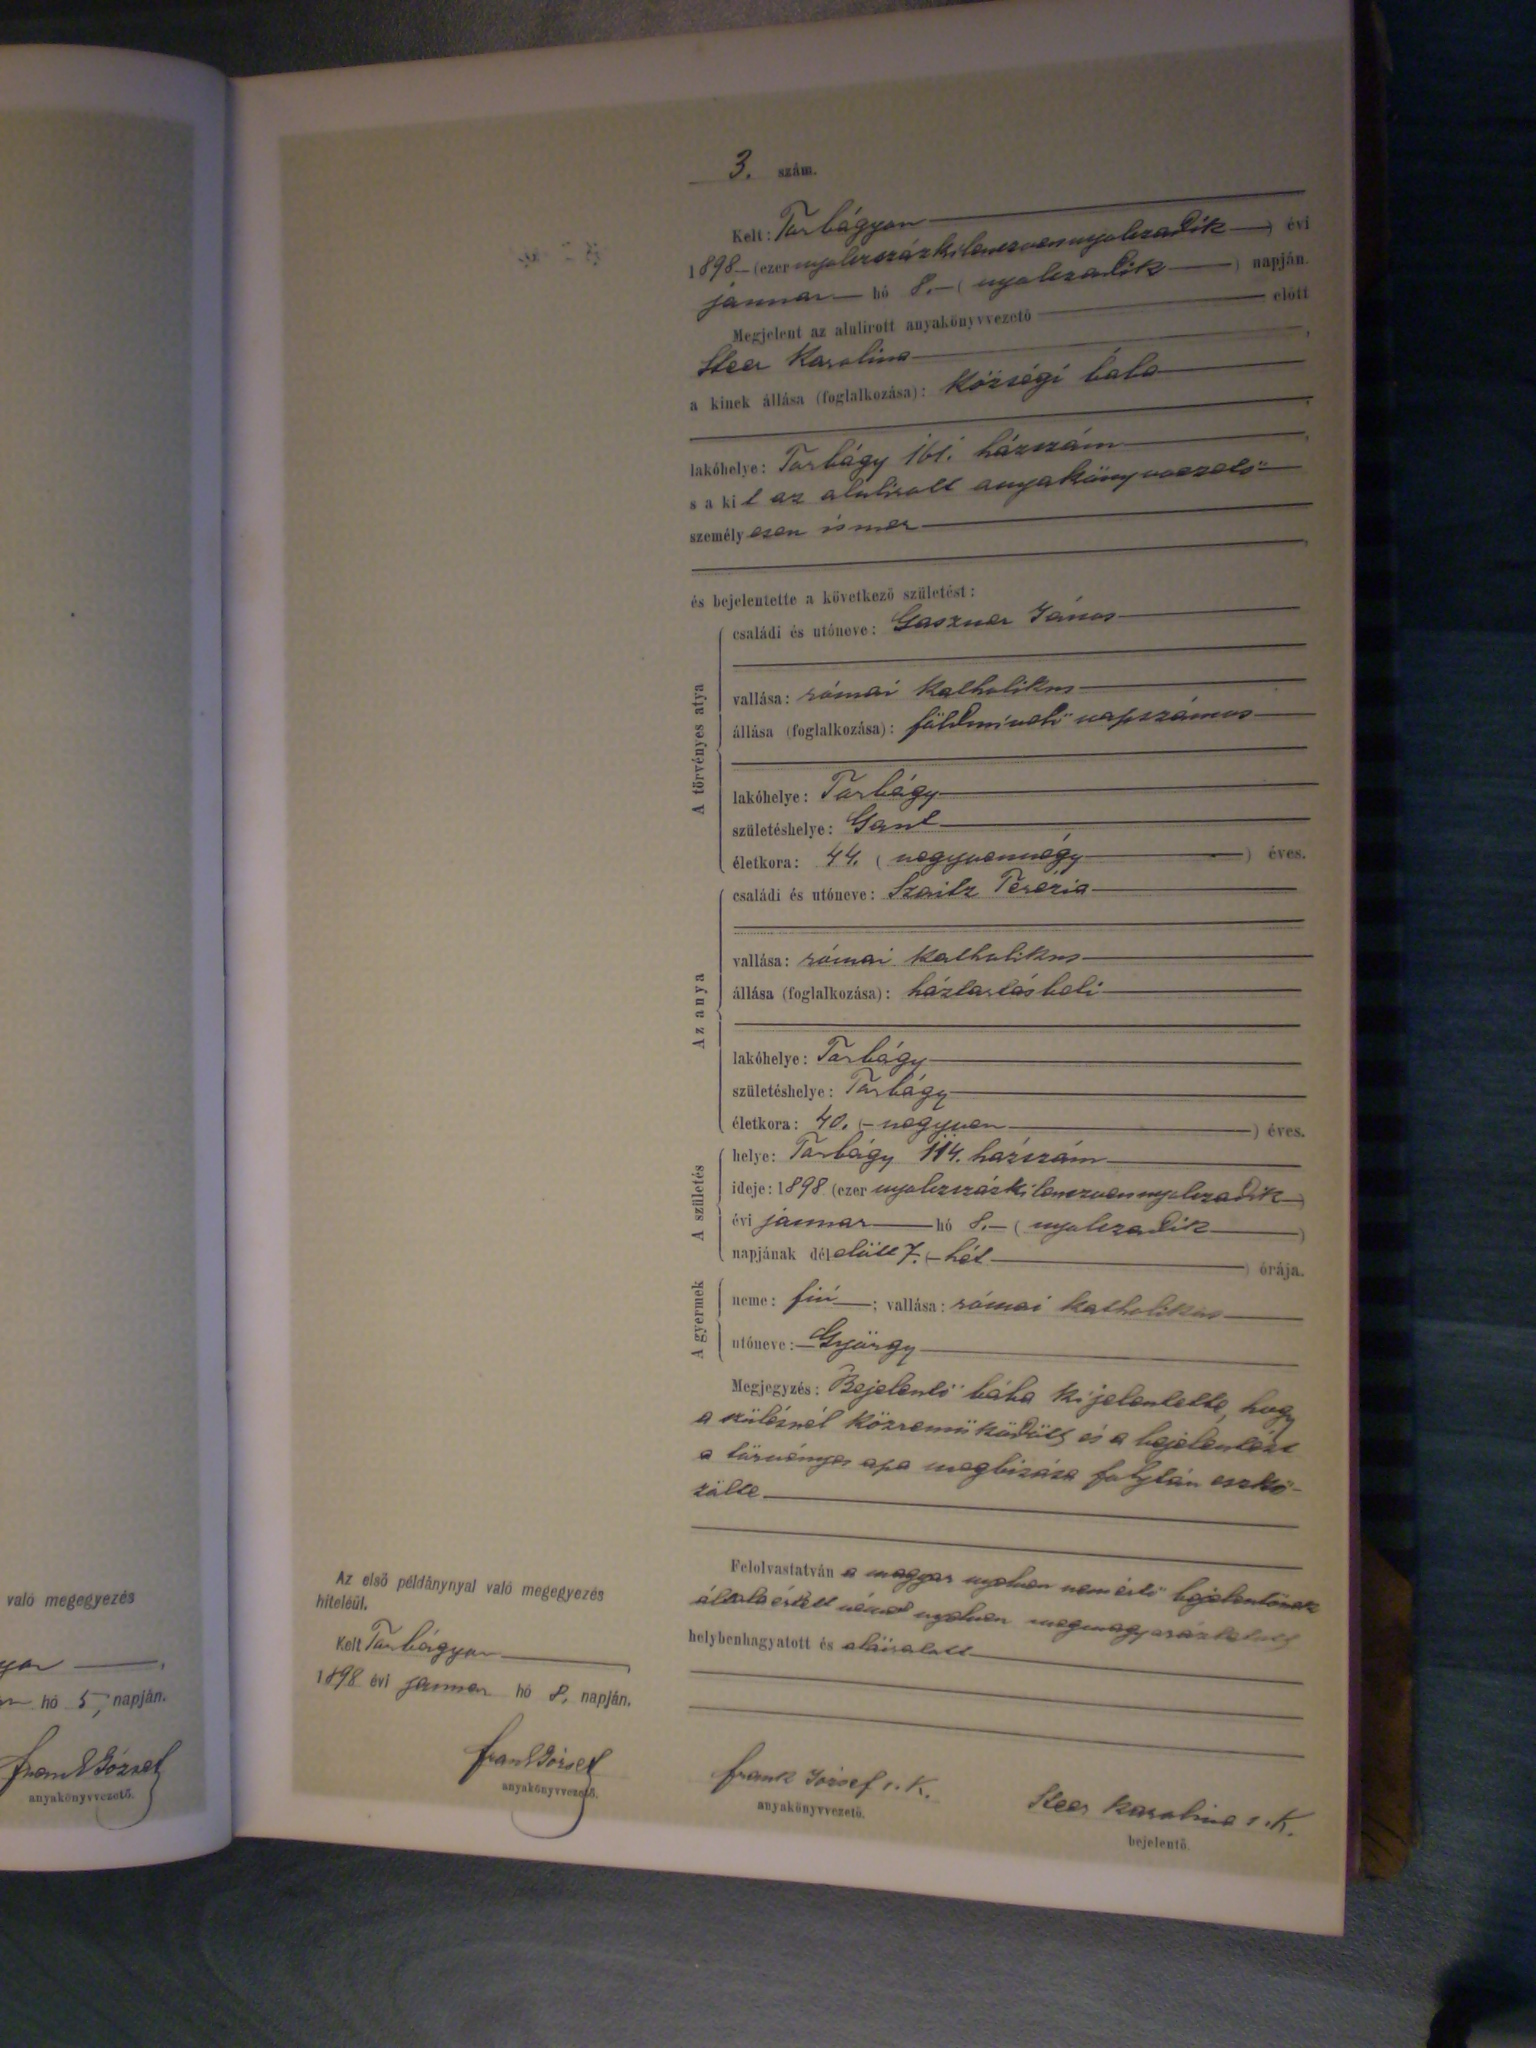 3. szám.
Kelt: Torbágyon
1898 (ezer nyolczszázkilenczvennyolczadik) évi
januar hó 8. (nyolczadik) napján.
Megjelent az alulírott anyakönyvvezető előtt
Steer Karolina
a kinek állása (foglalkozása): községi bába
lakóhelye: Torbágy 161. házszám
s a kit az alulírott anyakönyvvezető
személyesen ismer
és bejelentette a következő születést:
A törvényes atya
családi és utóneve: Gaszner János
vallása: római katholikus
állása (foglalkozása): földmívelő napszámos
lakóhelye: Torbágy
születéshelye: Gant
életkora: 44. (negyvennégy) éves.
Az anya
családi és utóneve: Szaitz Terézia
vallása: római katholikus
állása (foglalkozása): háztartásbeli
lakóhelye: Torbágy
születéshelye: Torbágy
életkora: 40. (negyven) éves.
A születés
helye: Torbágy 114. házszám
ideje: 1898 (ezer nyolczszázkilenczvennyolczadik)
évi januar hó 8. (nyolczadik)
napjának délelőtt 7. (hét) órája.
A gyermek
neme: fiú; vallása: római katholikus
utóneve: György
Megjegyzés: Bejelentő bába kijelentette, hogy
a szülésnél közreműködött és a bejelentést
a törvényes apa megbizása folytán eszkö-
zölte
Felolvastatván a magyar nyelven nem értő bejelentőnek
általa értett német nyelven megmagyaráztatott
helybenhagyatott és aláíratott
Az első példánynyal való megegyezés
hiteléül.
Kelt Torbágyon
1898 évi januar hó 8. napján.
Frank József
anyakönyvvezető.
Frank József s. k.
anyakönyvvezető.
Steer Karolina s. k.
bejelentő.
való megegyezés
hó 5, napján.
Frank József
anyakönyvvezető.